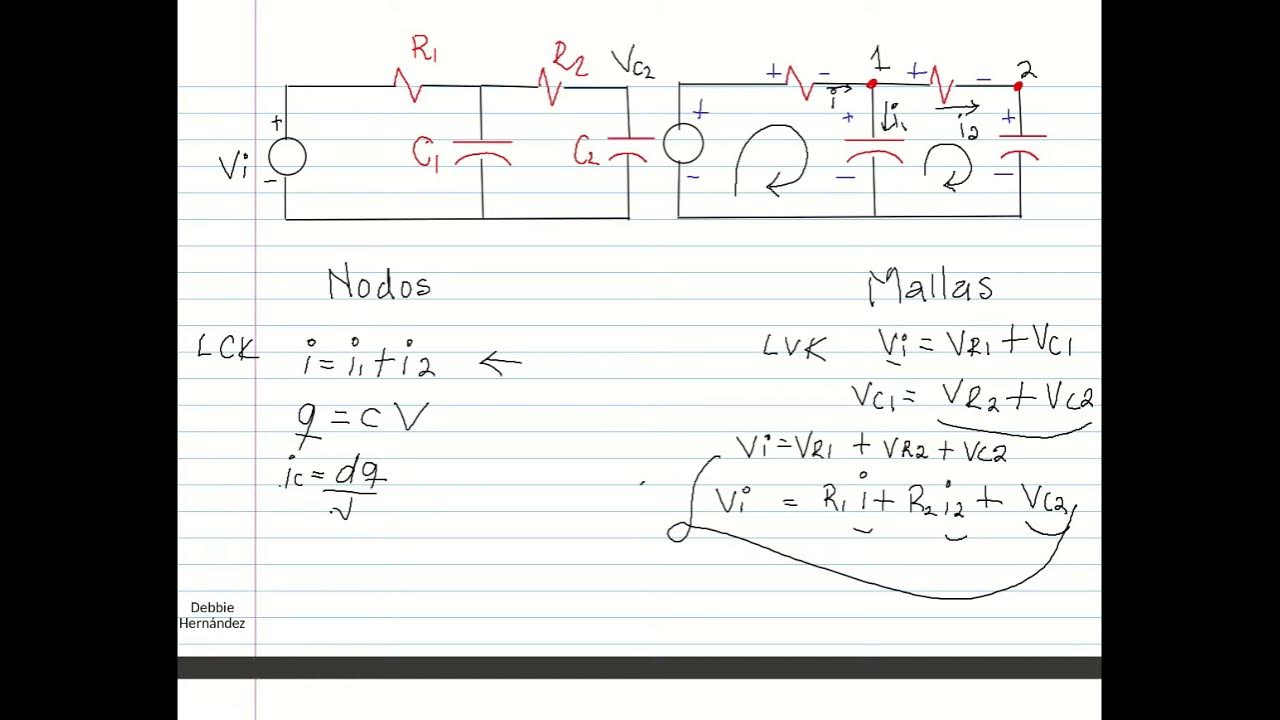 R1 R2 VC2
+ - 1 + - 2
+ Vi - C1 C2
+ - i + - i1 i2 + -
Nodos
Mallas
LCK i = i1 + i2 ←
LVK Vi = VR1 + VC1
q = C V
VC1 = VR2 + VC2
Vi = VR1 + VR2 + VC2
ic = dq
Vi = R1 i + R2 i2 + VC2
Debbie
Hernández